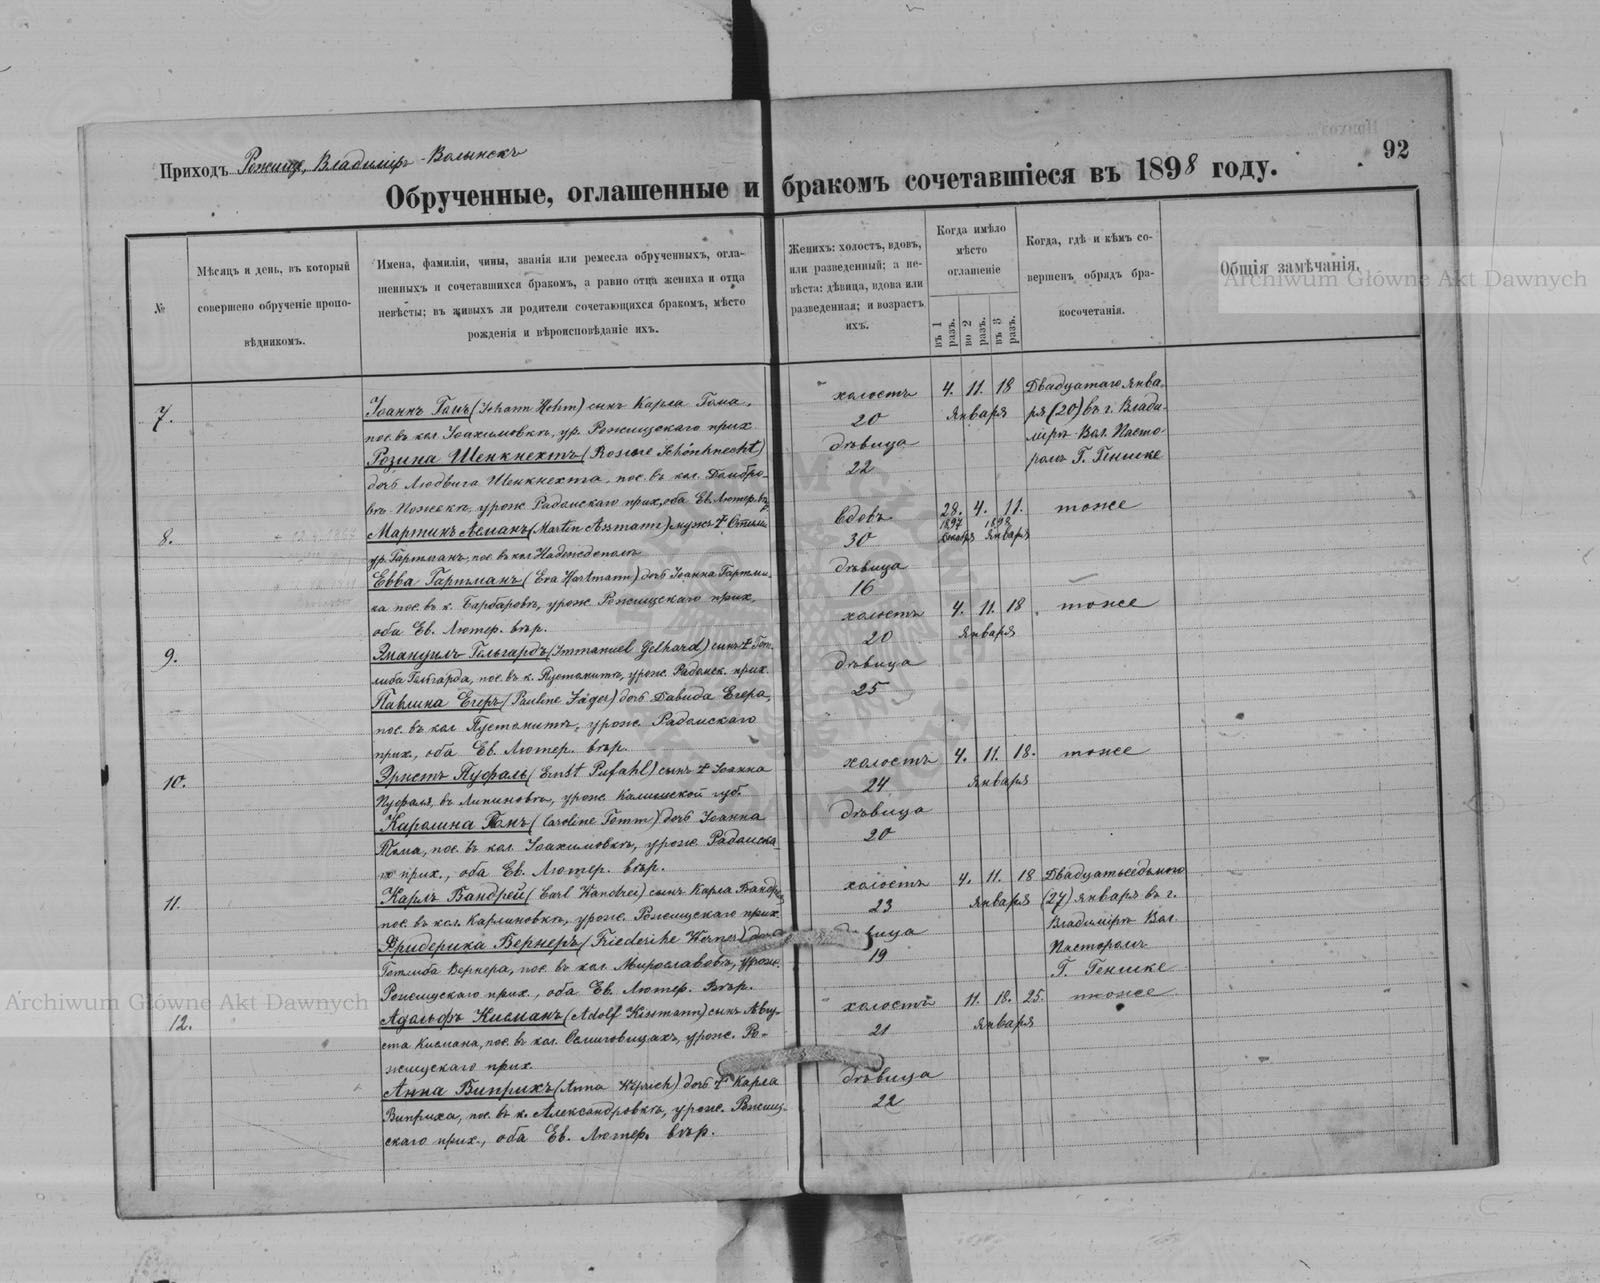 Приходъ Рожище, Владиміръ-Волынскъ
92
Обрученные, оглашенные и бракомъ сочетавшіеся въ 1898 году.
№
Мѣсяцъ и день, въ который
совершено обрученіе пропо-
вѣдникомъ.
Имена, фамиліи, чины, званія или ремесла обрученныхъ, огла-
шенныхъ и сочетавшихся бракомъ, а равно отца жениха и отца
невѣсты; въ живыхъ ли родители сочетающихся бракомъ, мѣсто
рожденія и вѣроисповѣданіе ихъ.
Женихъ: холостъ, вдовъ,
или разведенный; а не-
вѣста: дѣвица, вдова или
разведенная; и возрастъ
ихъ.
Когда имѣло
мѣсто
оглашеніе
въ 1 разъ.
во 2 разъ.
въ 3 разъ.
Когда, гдѣ и кѣмъ со-
вершенъ обрядъ бра-
косочетанія.
Общія замѣчанія.
Archiwum Główne Akt Dawnych
7.
Іоаннъ Гомъ (Johann Hohm) сынъ Карла Гома,
пос. въ кол. Іоахимовкѣ, ур. Рожищскаго прих.
Розина Шенкнехтъ (Rosine Schönknecht)
дочь Людвига Шенкнехта, пос. въ кол. Домбро-
въ Ножекъ, урож. Радомскаго прих., оба Ев. Лютер. вѣр
холостъ
20
дѣвица
22
4. 11. 18
Января
Двадцатаго Янва-
ря (20) въ г. Влади-
мірѣ-Вол. Пасто-
ромъ Г. Генике
8.
Мартинъ Асманъ (Martin Assmann) мужъ †
ур. Гартманъ, пос. въ кол Надеждополѣ
Евва Гартманъ (Eva Hartmann) дочь Іоанна Гартма-
на пос. въ к. Барбаровѣ, урож. Рожищскаго прих.
оба Ев. Лютер. вѣр.
вдовъ
30
дѣвица
16
28. 4. 11.
1897 1898
Декабря Января
тоже
9.
Имануилъ Гельгардъ (Immanuel Gelhard) сынъ † Гот-
либа Гельгарда, пос. въ к. Пустомитъ, урож. Радомск. прих.
Павлина Егеръ (Pauline Jäger) дочь Давида Егера,
пос. въ кол Пустомитъ, урож. Радомскаго
прих., оба Ев. Лютер. вѣр.
холостъ
20
дѣвица
25
4. 11. 18
Января
тоже
10.
Эрнстъ Пуфаль (Ernst Pufahl) сынъ † Іоанна
Пуфаля, въ Липиновкѣ, урож. Калишской губ.
Каролина Томъ (Caroline Tomm) дочь Іоанна
Тома, пос. въ кол. Іоахимовкѣ, урож. Радомска-
го прих., оба Ев. Лютер. вѣр.
холостъ
24
дѣвица
20
4. 11. 18.
Января
тоже
11.
Карлъ Вандрей (Carl Wandrei) сынъ Карла Вандрея
пос. въ кол. Карлиновкѣ, урож. Рожищскаго прих.
Фридерика Вернеръ (Friederike Werner) дочь
Готлиба Вернера, пос. въ кол. Мирославовкѣ, урож.
Рожищскаго прих., оба Ев. Лютер. Вѣр.
холостъ
23
дѣвица
19
4. 11. 18
Января
Двадцатьседьмого
(27) января въ г.
Владимірѣ Вол.
Пасторомъ
Г. Генике
Archiwum Główne Akt Dawnych
12.
Адольфъ Кисманъ (Adolf Kissmann) сынъ Авгу-
ста Кисмана, пос. въ кол. Селиговщахъ, урож. Ро-
жищскаго прих.
Анна Виприхъ (Anna Wiprich) дочь † Карла
Виприха, пос. въ к. Александровкѣ, урож. Рожищ-
скаго прих., оба Ев. Лютер. вѣр.
холостъ
21
дѣвица
22
11. 18. 25.
Января
тоже